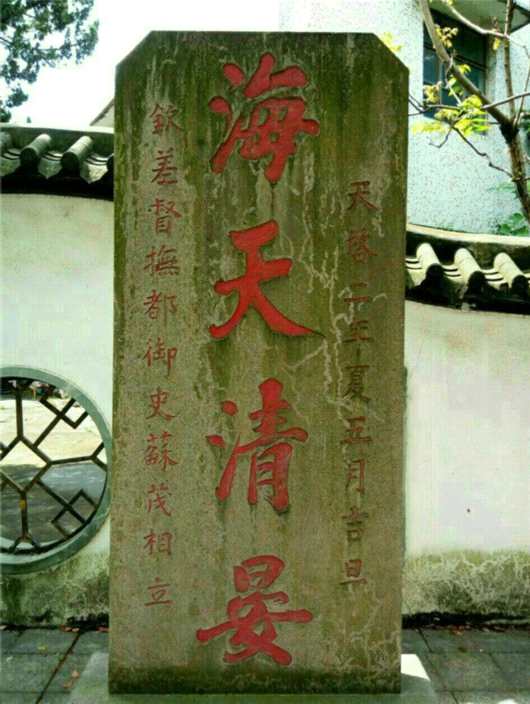 天啓二年夏五月吉旦
海天清晏
欽差督撫都御史蘇茂相立